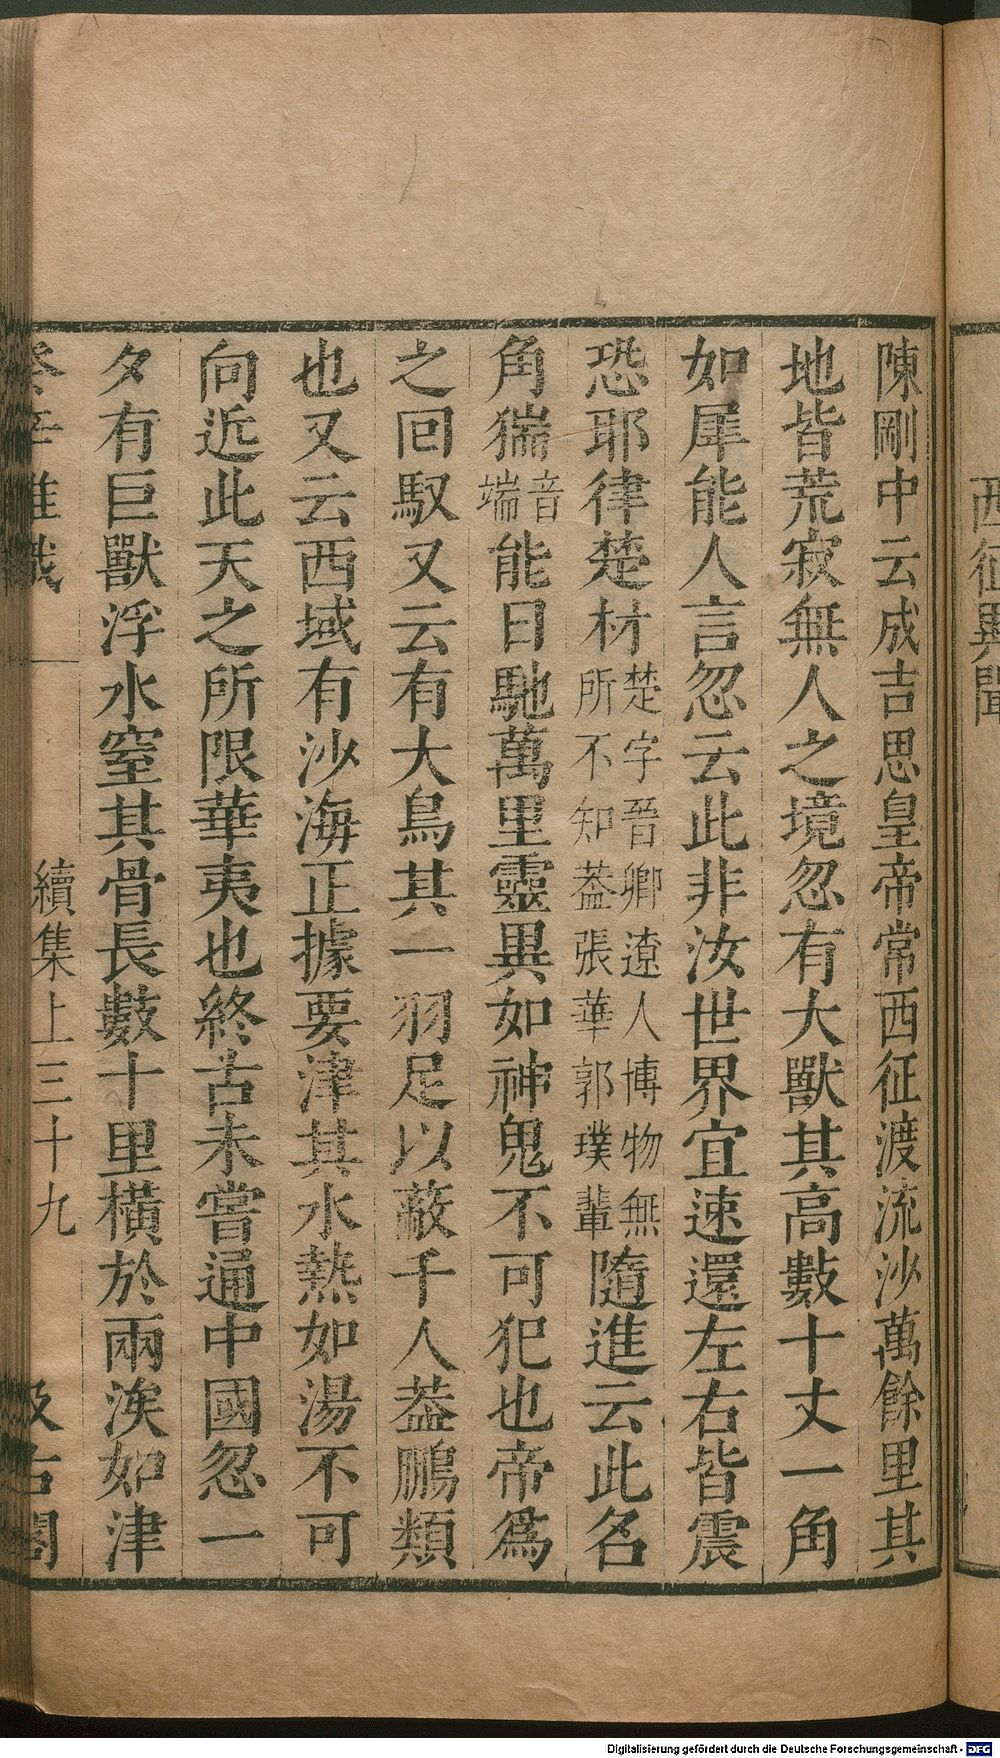 西征異聞
陳剛中云成吉思皇帝常西征渡流沙萬餘里其
地皆荒寂無人之境忽有大獸其高數十丈一角
如犀能人言忽云此非汝世界宜速還左右皆震
恐耶律楚材楚字晉卿遼人博物無所不知葢張華郭璞輩隨進云此名
角猯音端能日馳萬里靈異如神鬼不可犯也帝爲
之回馭又云有大鳥其一羽足以蔽千人葢鵬類
也又云西域有沙海正據要津其水熱如湯不可
向近此天之所限華夷也終古未嘗通中國忽一
夕有巨獸浮水窒其骨長數十里橫於兩涘如津
續集上三十九
Digitalisierung gefördert durch die Deutsche Forschungsgemeinschaft - DFG